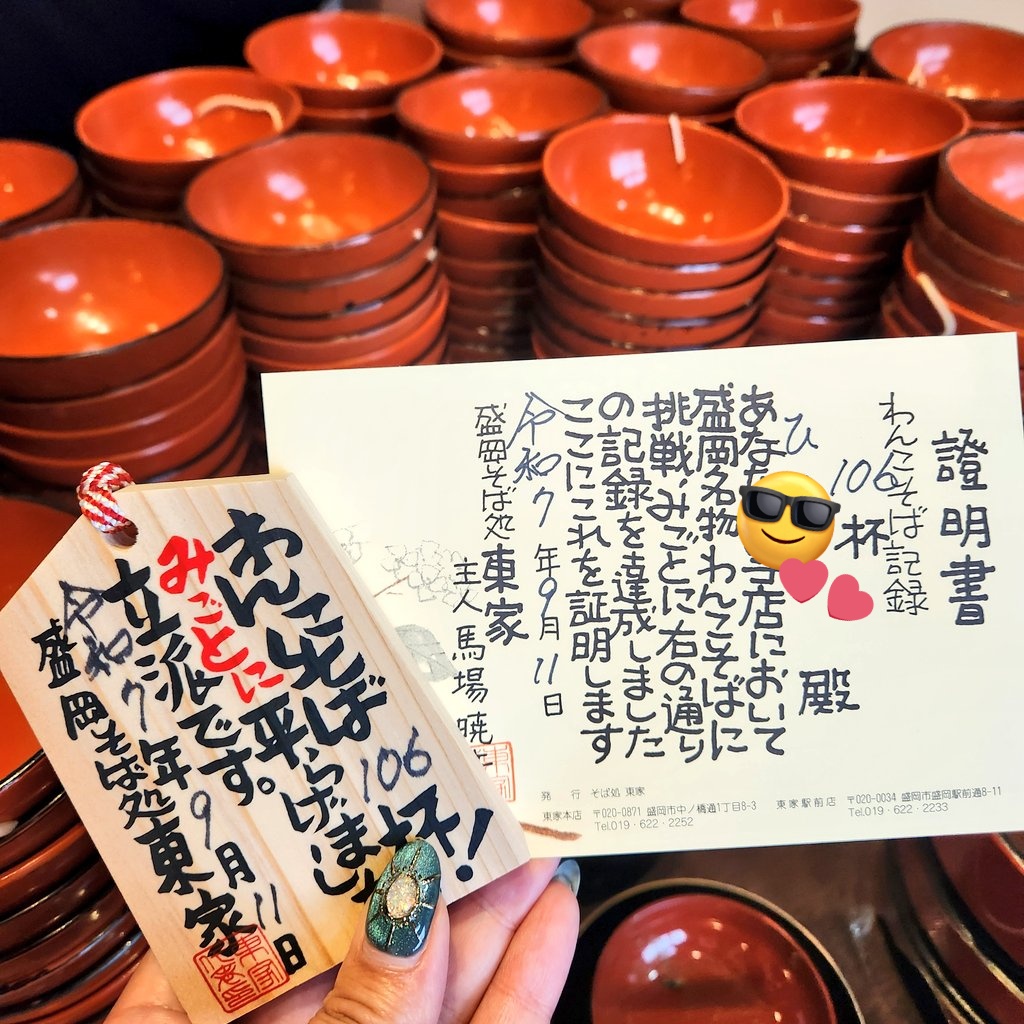 證明書
わんこそば記録
106杯
ひ
殿
あなた 当店において
盛岡名物わんこそばに
挑戦、みごとに右の通り
の記録を達成しました
ここにこれを証明します
令和7年9月11日
盛岡そば処 東家
主人 馬場暁
発 行 そば処 東家
東家本店 〒020-0871 盛岡市中ノ橋通1丁目8-3
Tel.019・622・2252
東家駅前店 〒020-0034 盛岡市盛岡駅前通8-11
Tel.019・622・2233
わんこそば106杯!
みごとに平らげまし
立派です。
令和7年9月11日
盛岡そば処東家